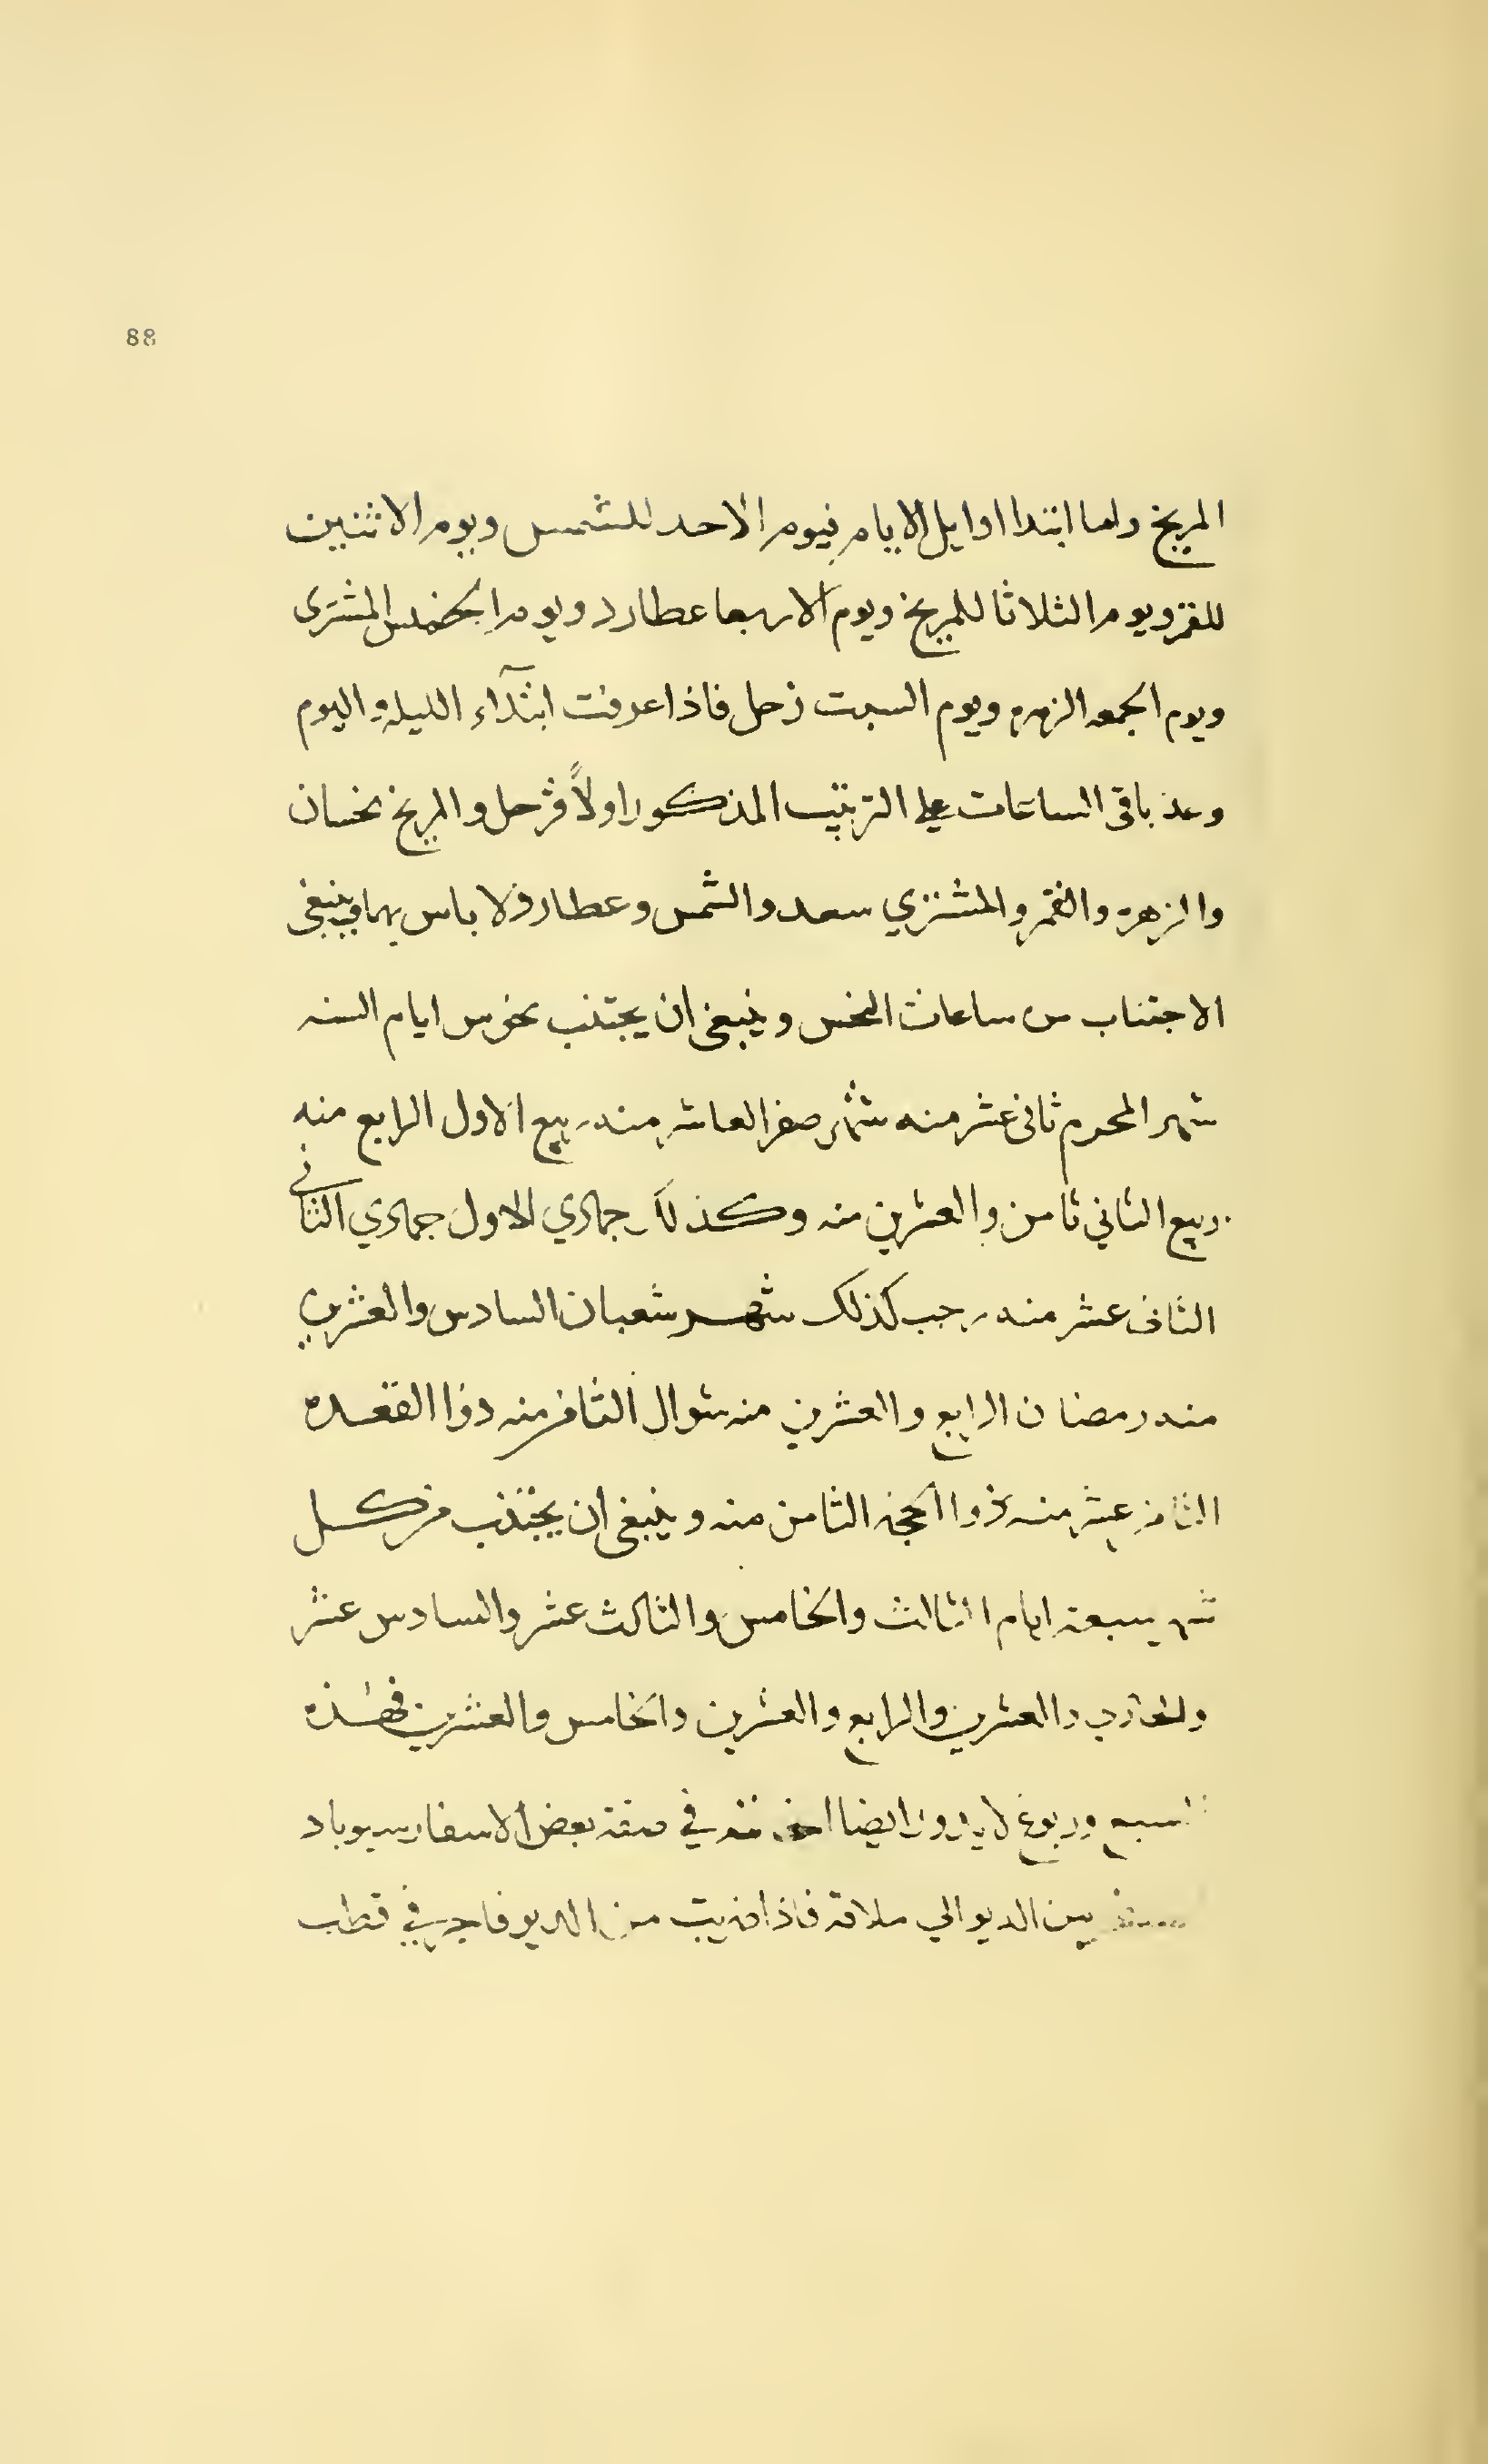 88
المريخ واما ابتدا اوايل الايام فيوم الاحد للشمس ويوم الاثنين
للقمر ويوم الثلاثا للمريخ ويوم الاربعا عطارد ويوم الخميس المشترى
ويوم الجمعه الزهره ويوم السبت زحل فاذا عرفت ابتدآء الليله واليوم
وعد باقى الساعات على الترتيب المذكور اولاً فزحل والمريخ نحسان
والزهرة والقمر والمشتري سعد والشمس وعطارد لا باس بهما وينبغى
الاجتناب من ساعات النحس وينبغى ان يجتنب نحوس ايام السنه
شهر المحرم ثانى عشر منه شهر صفر العاشر منه ربيع الاول الرابع منه
ربيع الثاني ثامن والعشرين منه وكذلك جمادي الاول جمادي الثاني
الثانى عشر منه رجب كذلك شهر شعبان السادس والعشرين
منه رمضان الرابع والعشرين منه شوال الثامن منه ذوا القعده
الثامن عشر منه ذوا الحجه الثامن منه وينبغى ان يجتنب من كل
شهر سبعة ايام الثالث والخامس والثالث عشر والسادس عشر
والحادي والعشرين والرابع والعشرين والخامس والعشرين فهذه
ايضا في صفة بعض الاسفار
من الديو الي ملاقة فاذا من الديو فاجري في قطب